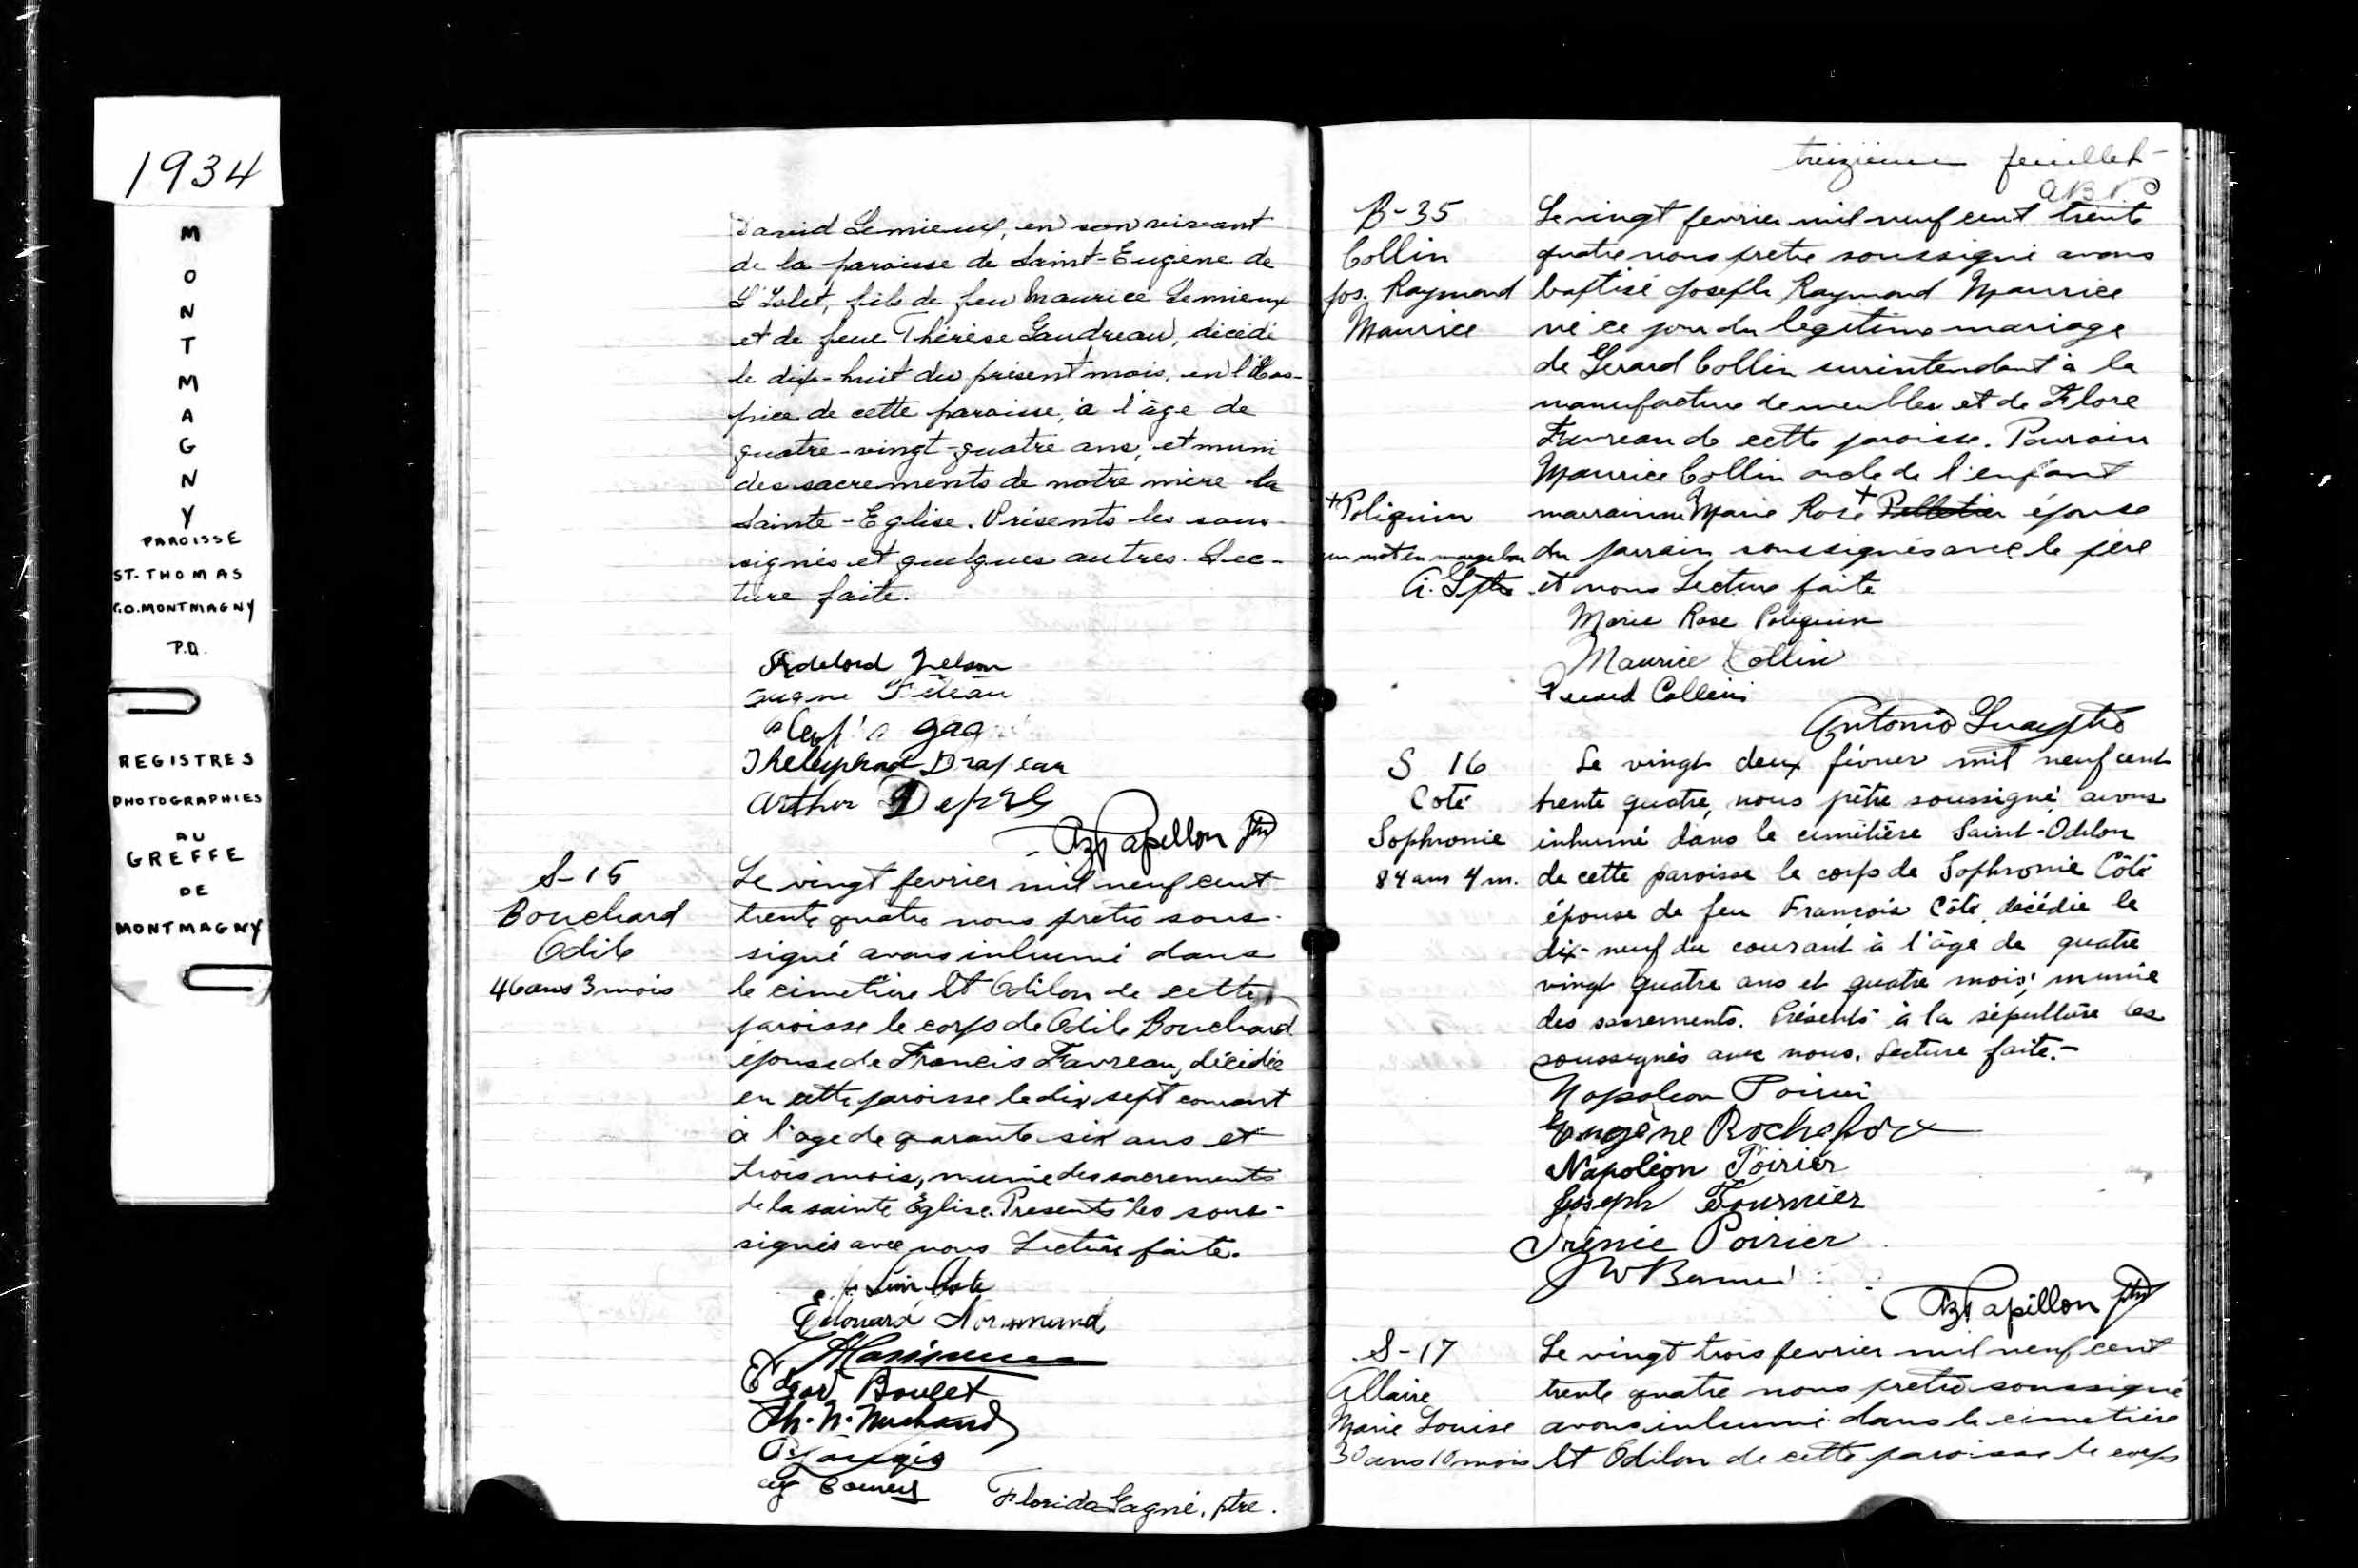 1934
MONTMAGNY
PAROISSE
ST-THOMAS
C.O. MONTMAGNY
P.Q.
REGISTRES
PHOTOGRAPHIES
AU
GREFFE
DE
MONTMAGNY
David Lemieux, en son vivant
de la paroisse de Saint-Eugène de
L'Islet, fils de feu Maurice Lemieux
et de feue Thérèse Gaudreau, décédé
le dix-huit du présent mois, en l'Hos-
pice de cette paroisse, à l'âge de
quatre-vingt-quatre ans, et muni
des sacrements de notre mère la
Sainte-Eglise. Présents les sous-
signés et quelques autres. Lec-
ture faite.
Adelard
Arthur
Az Papillon ptre
S-15
Bouchard
Odile
46 ans 3 mois
Le vingt fevrier mil neuf cent
trente quatre nous pretre sous-
signé avons inhumé dans
le cimetière St Odilon de cette
paroisse le corps de Odile Bouchard
épouse de Francis Favreau, décédée
en cette paroisse le dix sept courant
à l'age de quarante six ans et
trois mois, munie des sacrements
de la sainte Eglise. Presents les sous-
signés avec nous Lecture faite.
Edouard Normand
Edgar Boulet
Florido Gagné, ptre.
treizième feuillet-
B-35
Collin
Jos. Raymond
Maurice
Le vingt fevrier mil neuf cent trente
quatre nous pretre soussigné avons
baptisé Joseph Raymond Maurice
né ce jour du legitime mariage
de Gerard Collin surintendant à la
manufacture de meubles et de Flore
Favreau de cette paroisse. Parrain
Maurice Collin oncle de l'enfant
+ Poliquin
marraine Marie Rose + Pelletier épouse
un mot en marge bon
du parrain soussignés avec le père
A. G ptre
et nous Lecture faite
Marie Rose Poliquin
Maurice Collin
Gerard Collin
Antonio
S 16
Coté
Sophronie
84 ans 4 m.
Le vingt deux février mil neuf cent
trente quatre, nous prêtre soussigné avons
inhumé dans le cimetière Saint-Odilon
de cette paroisse le corps de Sophronie Côté
épouse de feu François Côté, décédée le
dix-neuf du courant à l'âge de quatre
vingt quatre ans et quatre mois, munie
des sacrements. Présents à la sépulture les
soussignés avec nous. Lecture faite.-
Napoleon Poirier
Eugène Rochefort
Napoléon Poirier
Joseph Fournier
Irénée Poirier
Az Papillon ptre
S-17
Allaire
Marie Louise
30 ans 10 mois
Le vingt trois fevrier mil neuf cent
trente quatre nous pretre soussigné
avons inhumé dans le cimetière
St Odilon de cette paroisse le corps